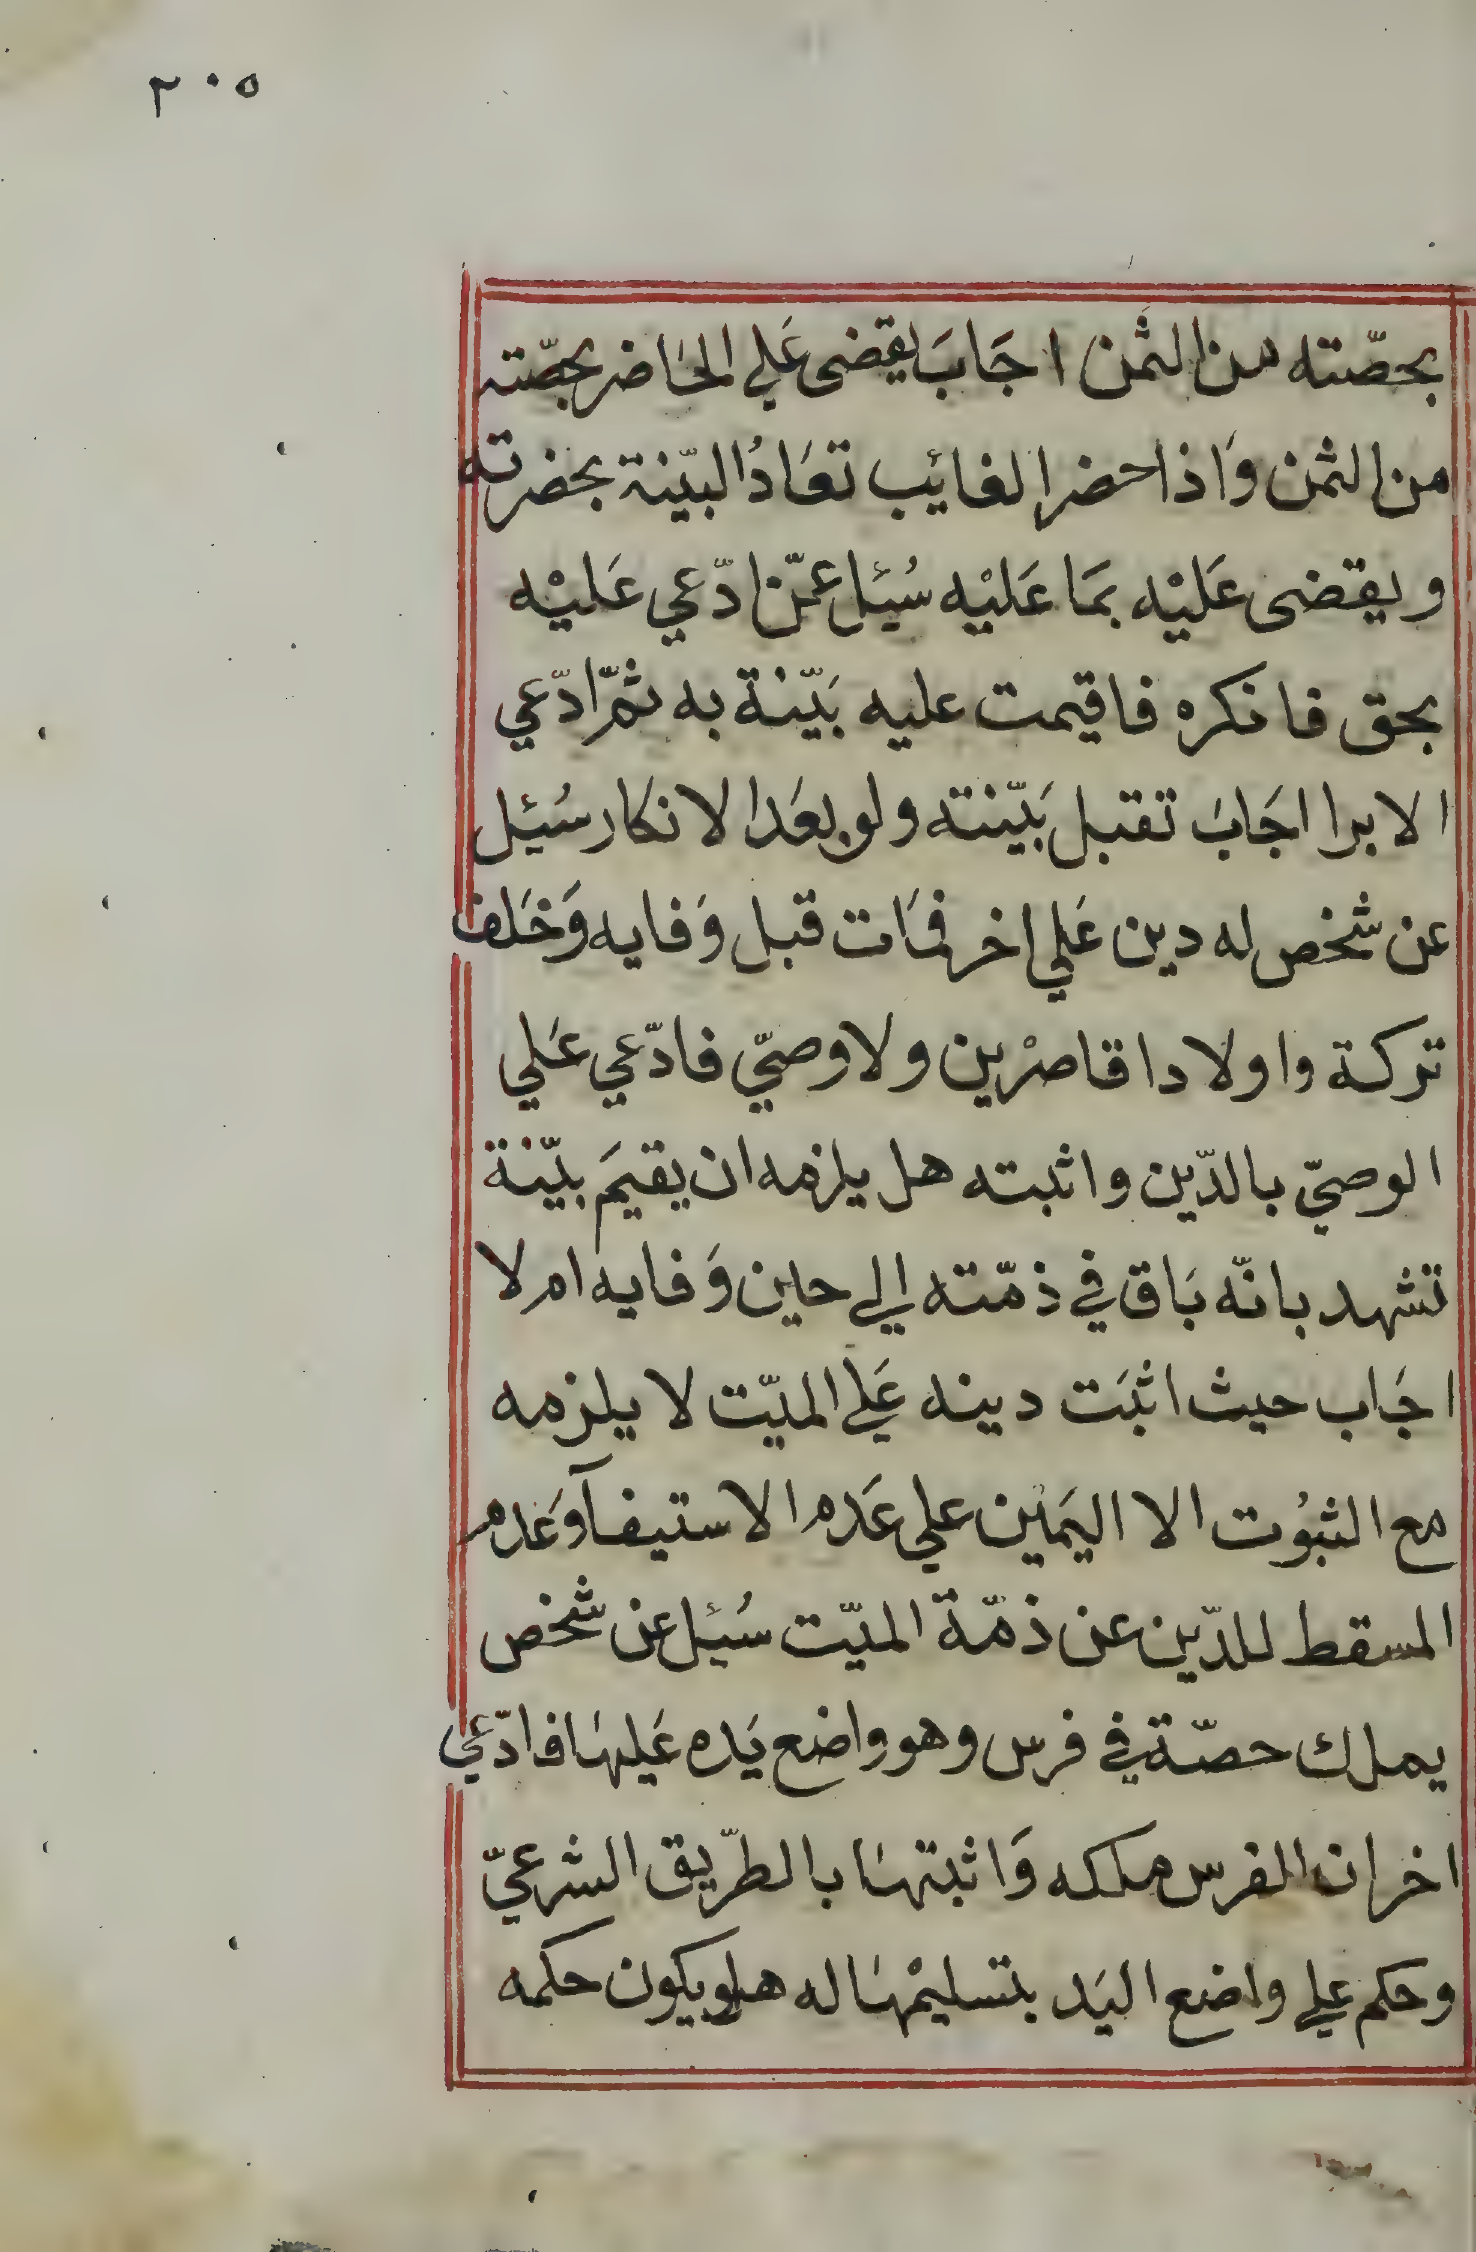 ٢٠٥
بحصّته من الثمن اجَابَ يقضى عَلي الحَاضر بحصّته
من الثمن وَاذا حضر الغائب تعَادُ البيّنة بحضرته
ويقضى عَليْه بمَا عَليْه سُئل عمّن ادّعي عَليْه
بحق فانكره فاقيمت عليه بَيّنة به ثمّ ادّعي
الابرا اجَابَ تقبل بَيّنته ولو بعَد الانكار سُئل
عن شخص له دين عَلي اخر فمَات قبل وَفايه وَخَلف
تركة واولادا قاصرْين ولا وصيّ فادّعي عَلي
الوصيّ بالدّين واثبته هل يلزمه ان يقيمَ بيّنة
تشهد بانّه بَاق في ذمّته إلي حين وَفايه ام لا
اجَاب حيث اثبَت دينه عَلي الميّت لا يلزمه
مع الثبُوت الا اليَمين علي عَدم الاستيفآ وعَدم
المسقط للدّين عن ذمّة الميّت سُئل عن شخص
يملك حصّة في فرس وهو واضع يَده عَليهَا فادّعي
اخر ان الفرس ملكه وَاثبتهَا بالطّريق الشرعيّ
وحكم علي واضع اليَد بتسليمْهَا له هل ويكون حكمه